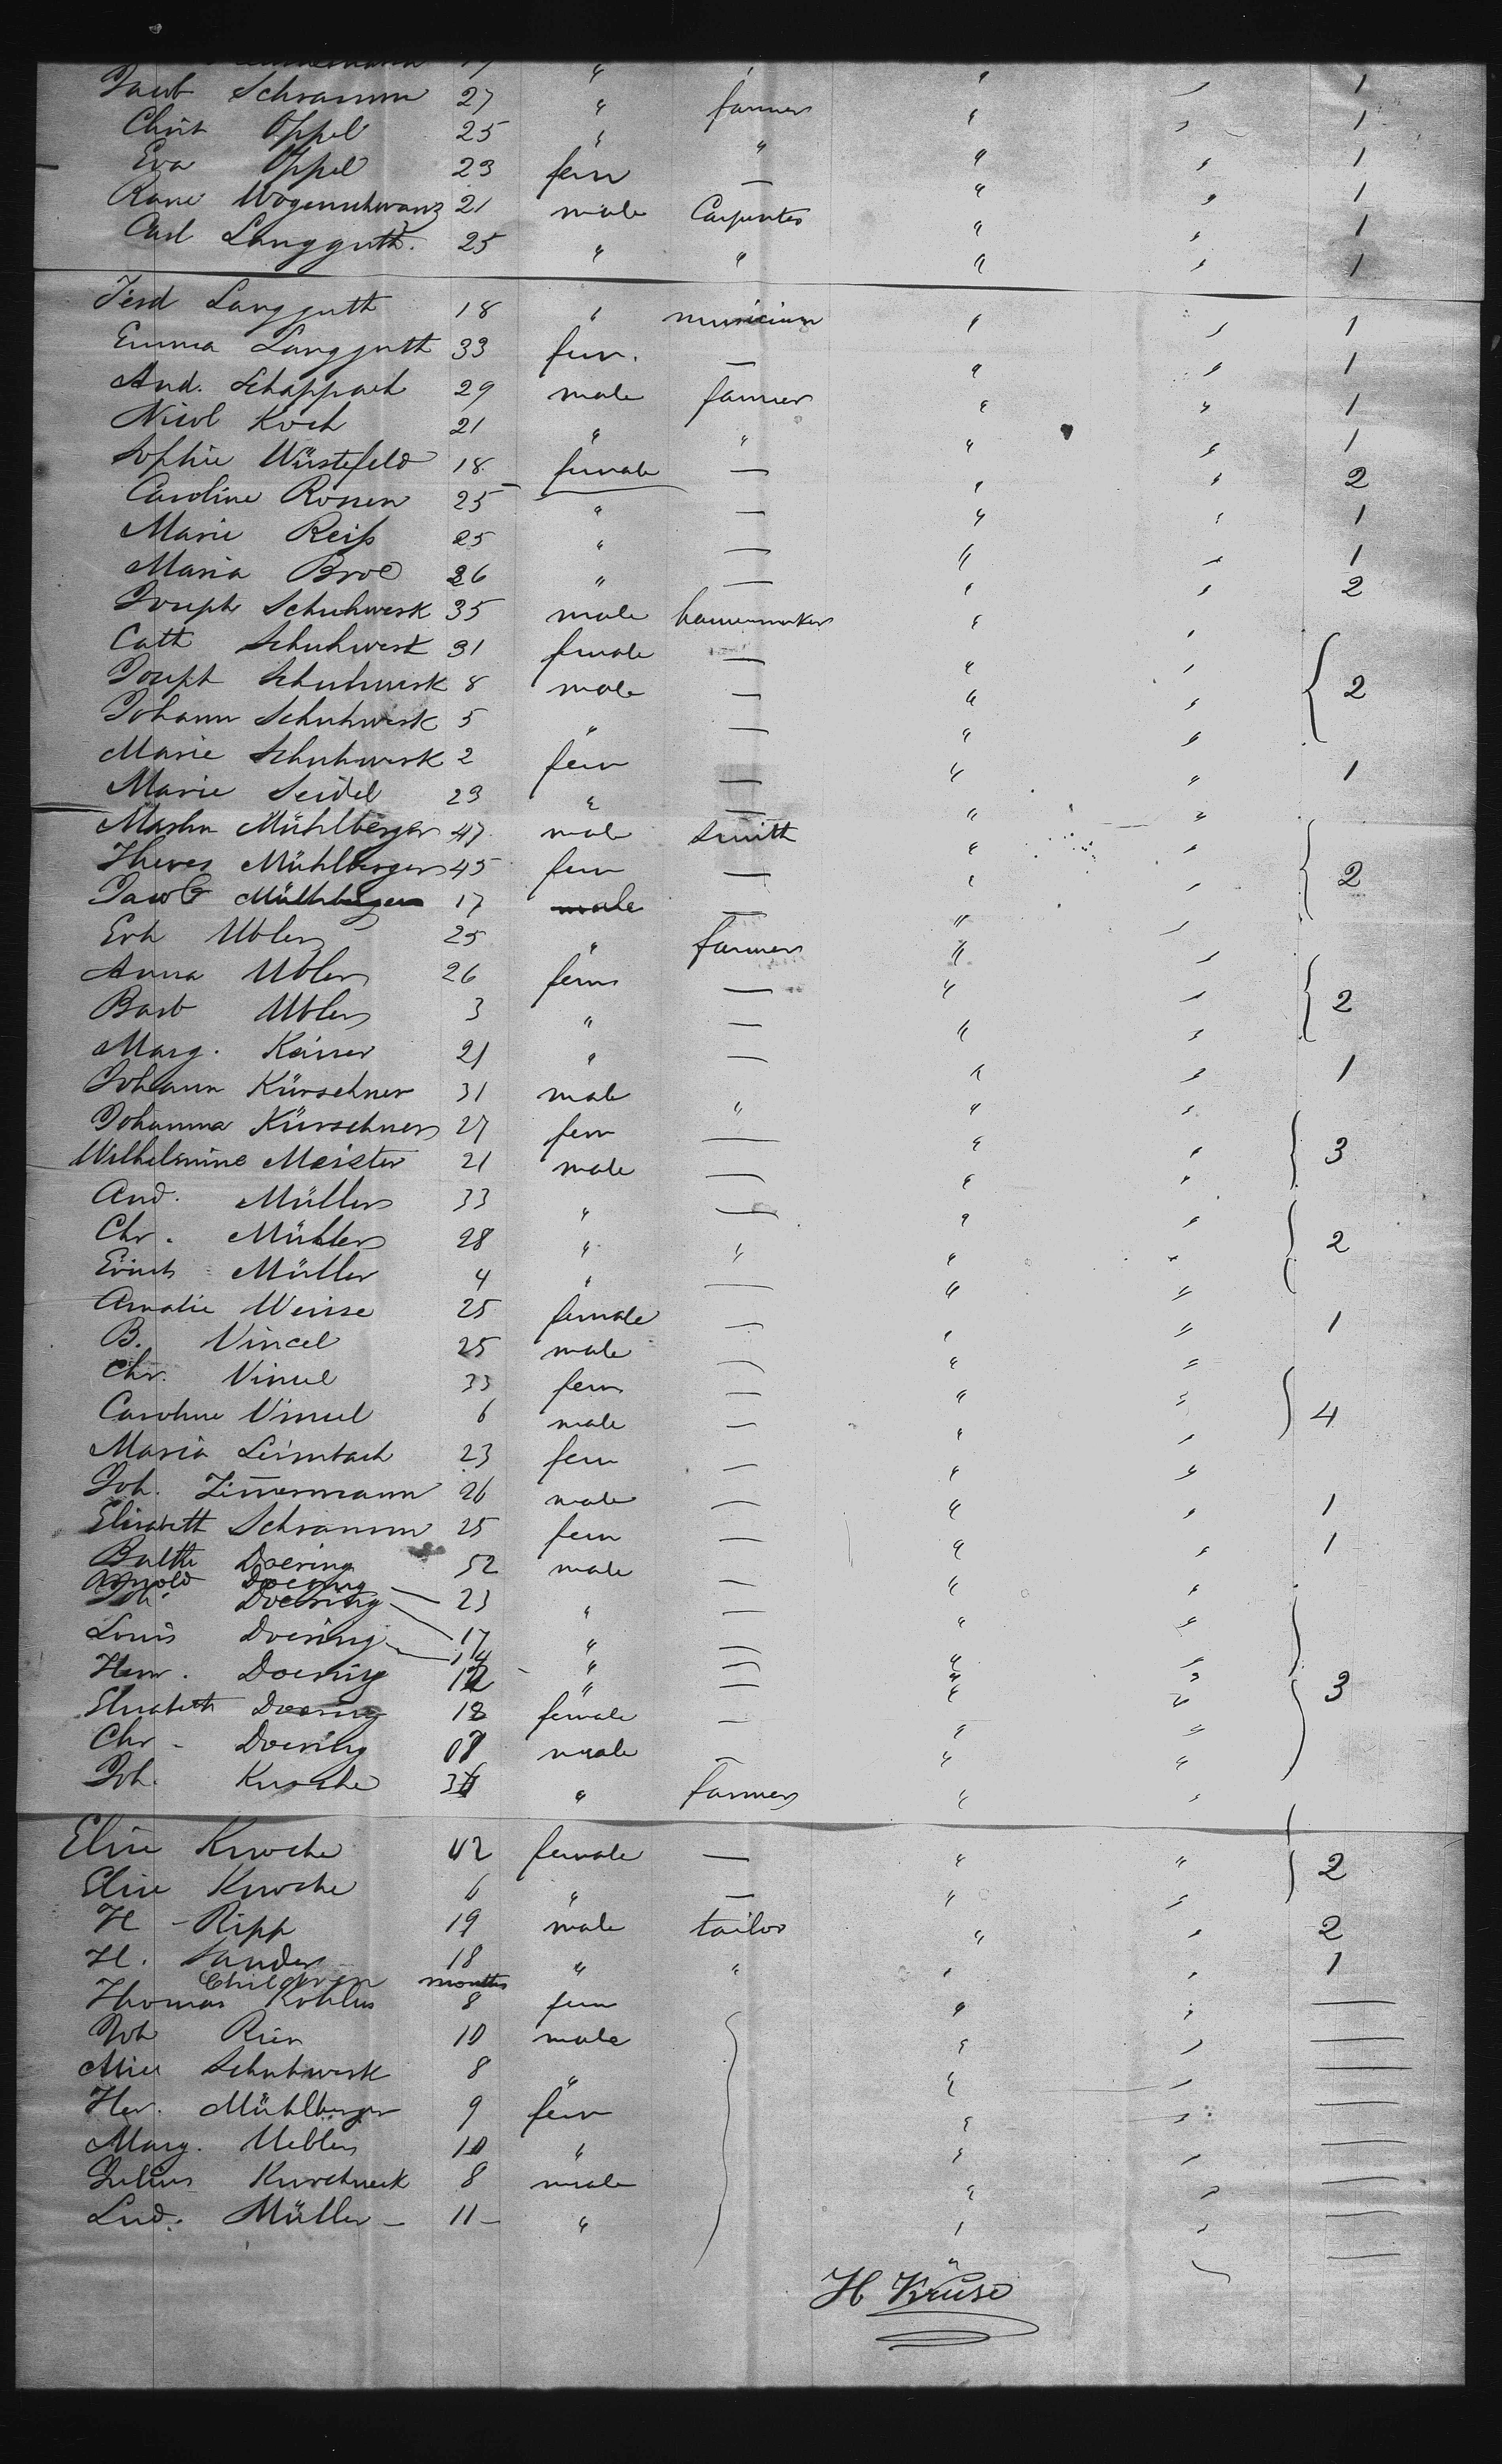 Jacob Schramm 27 " farmer " " 1
Christ Oppel 25 " " " " 1
Eva Oppel 23 fem — " " 1
Wogenschwanz 21 male Carpenter " " 1
Carl Langguth. 25 " " " " 1
Ferd Langguth 18 " musician " " 1
Emma Langguth 33 fem. — " " 1
And. Schappach 29 male farmer " " 1
Nicol Koch 21 " " " " 1
Sophie Wüstefeld 18 female — " " 2
Caroline Rossen 25 " — " " 1
Marie Reiß 25 " — " " 1
Maria Broe 26 " — " " 2
Joseph Schuhwerk 35 male " "
Cath Schuhwerk 31 female — " "
Joseph Schuhwerk 8 male — " " 2
Johann Schuhwerk 5 " — " "
Marie Schuhwerk 2 fem — " "
Marie Seidel 23 " — " " 1
Martin Mühlberger 47 male Smith " "
Theres Mühlberger 45 fem — " " 2
Jacob Mühlberger 17 male — " "
Erh Ubler 25 " farmer " "
Anna Ubler 26 fem — " " 2
Barb Ubler 3 " — " "
Marg. Kaiser 21 " — " " 1
Johann Kürschner 31 male " " "
Johanna Kürschner 27 fem — " " 3
Wilhelmine Meister 21 male — " "
And. Müller 33 " — " "
Chr. Mühler 28 " " " " 2
Ernst Müller 4 " — " "
Amalie Weisse 25 female — " " 1
B. Vincel 25 male — " "
Chr. Vincel 33 fem — " "
Caroline Vincel 6 male — " " 4
Maria Leimbach 23 fem — " "
Joh. Zimmermann 26 male — " " 1
Elisabeth Schramm 25 fem — " " 1
Balth Doering 52 male — " "
Arnold Doering
Joh. Doering — 23 " — " "
Louis Doering — 17 " — " "
14 " — " "
Henr. Doering 12 " — " " 3
Elisabeth Doering female — " "
Chr - Doering male — " "
Joh. Krusche " farmer " "
Elise Krusche 42 female — " " 2
Elise Krusche 6 " — " "
H - Ripp 19 male tailor " " 2
H. Sander 18 " " " " 1
Children months
Thomas Kohlus 8 fem " " —
Joh Rien 10 male " " —
Schuhwerk 8 " " " —
Her. Mühlberger 9 fem " " —
Marg. Uebler 10 " " " —
Julius Kurschneck 8 male " " —
Lud. Müller — 11 — " " " —
H Kruse